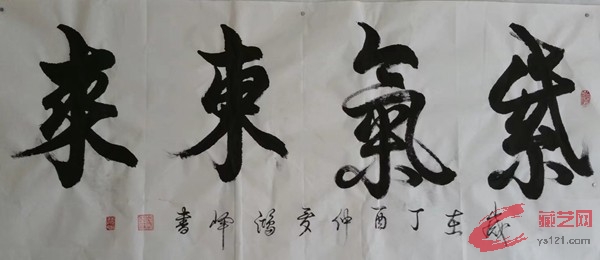 紫氣東來
歲在丁酉仲夏鴻峰書
藏艺网
ys121.com